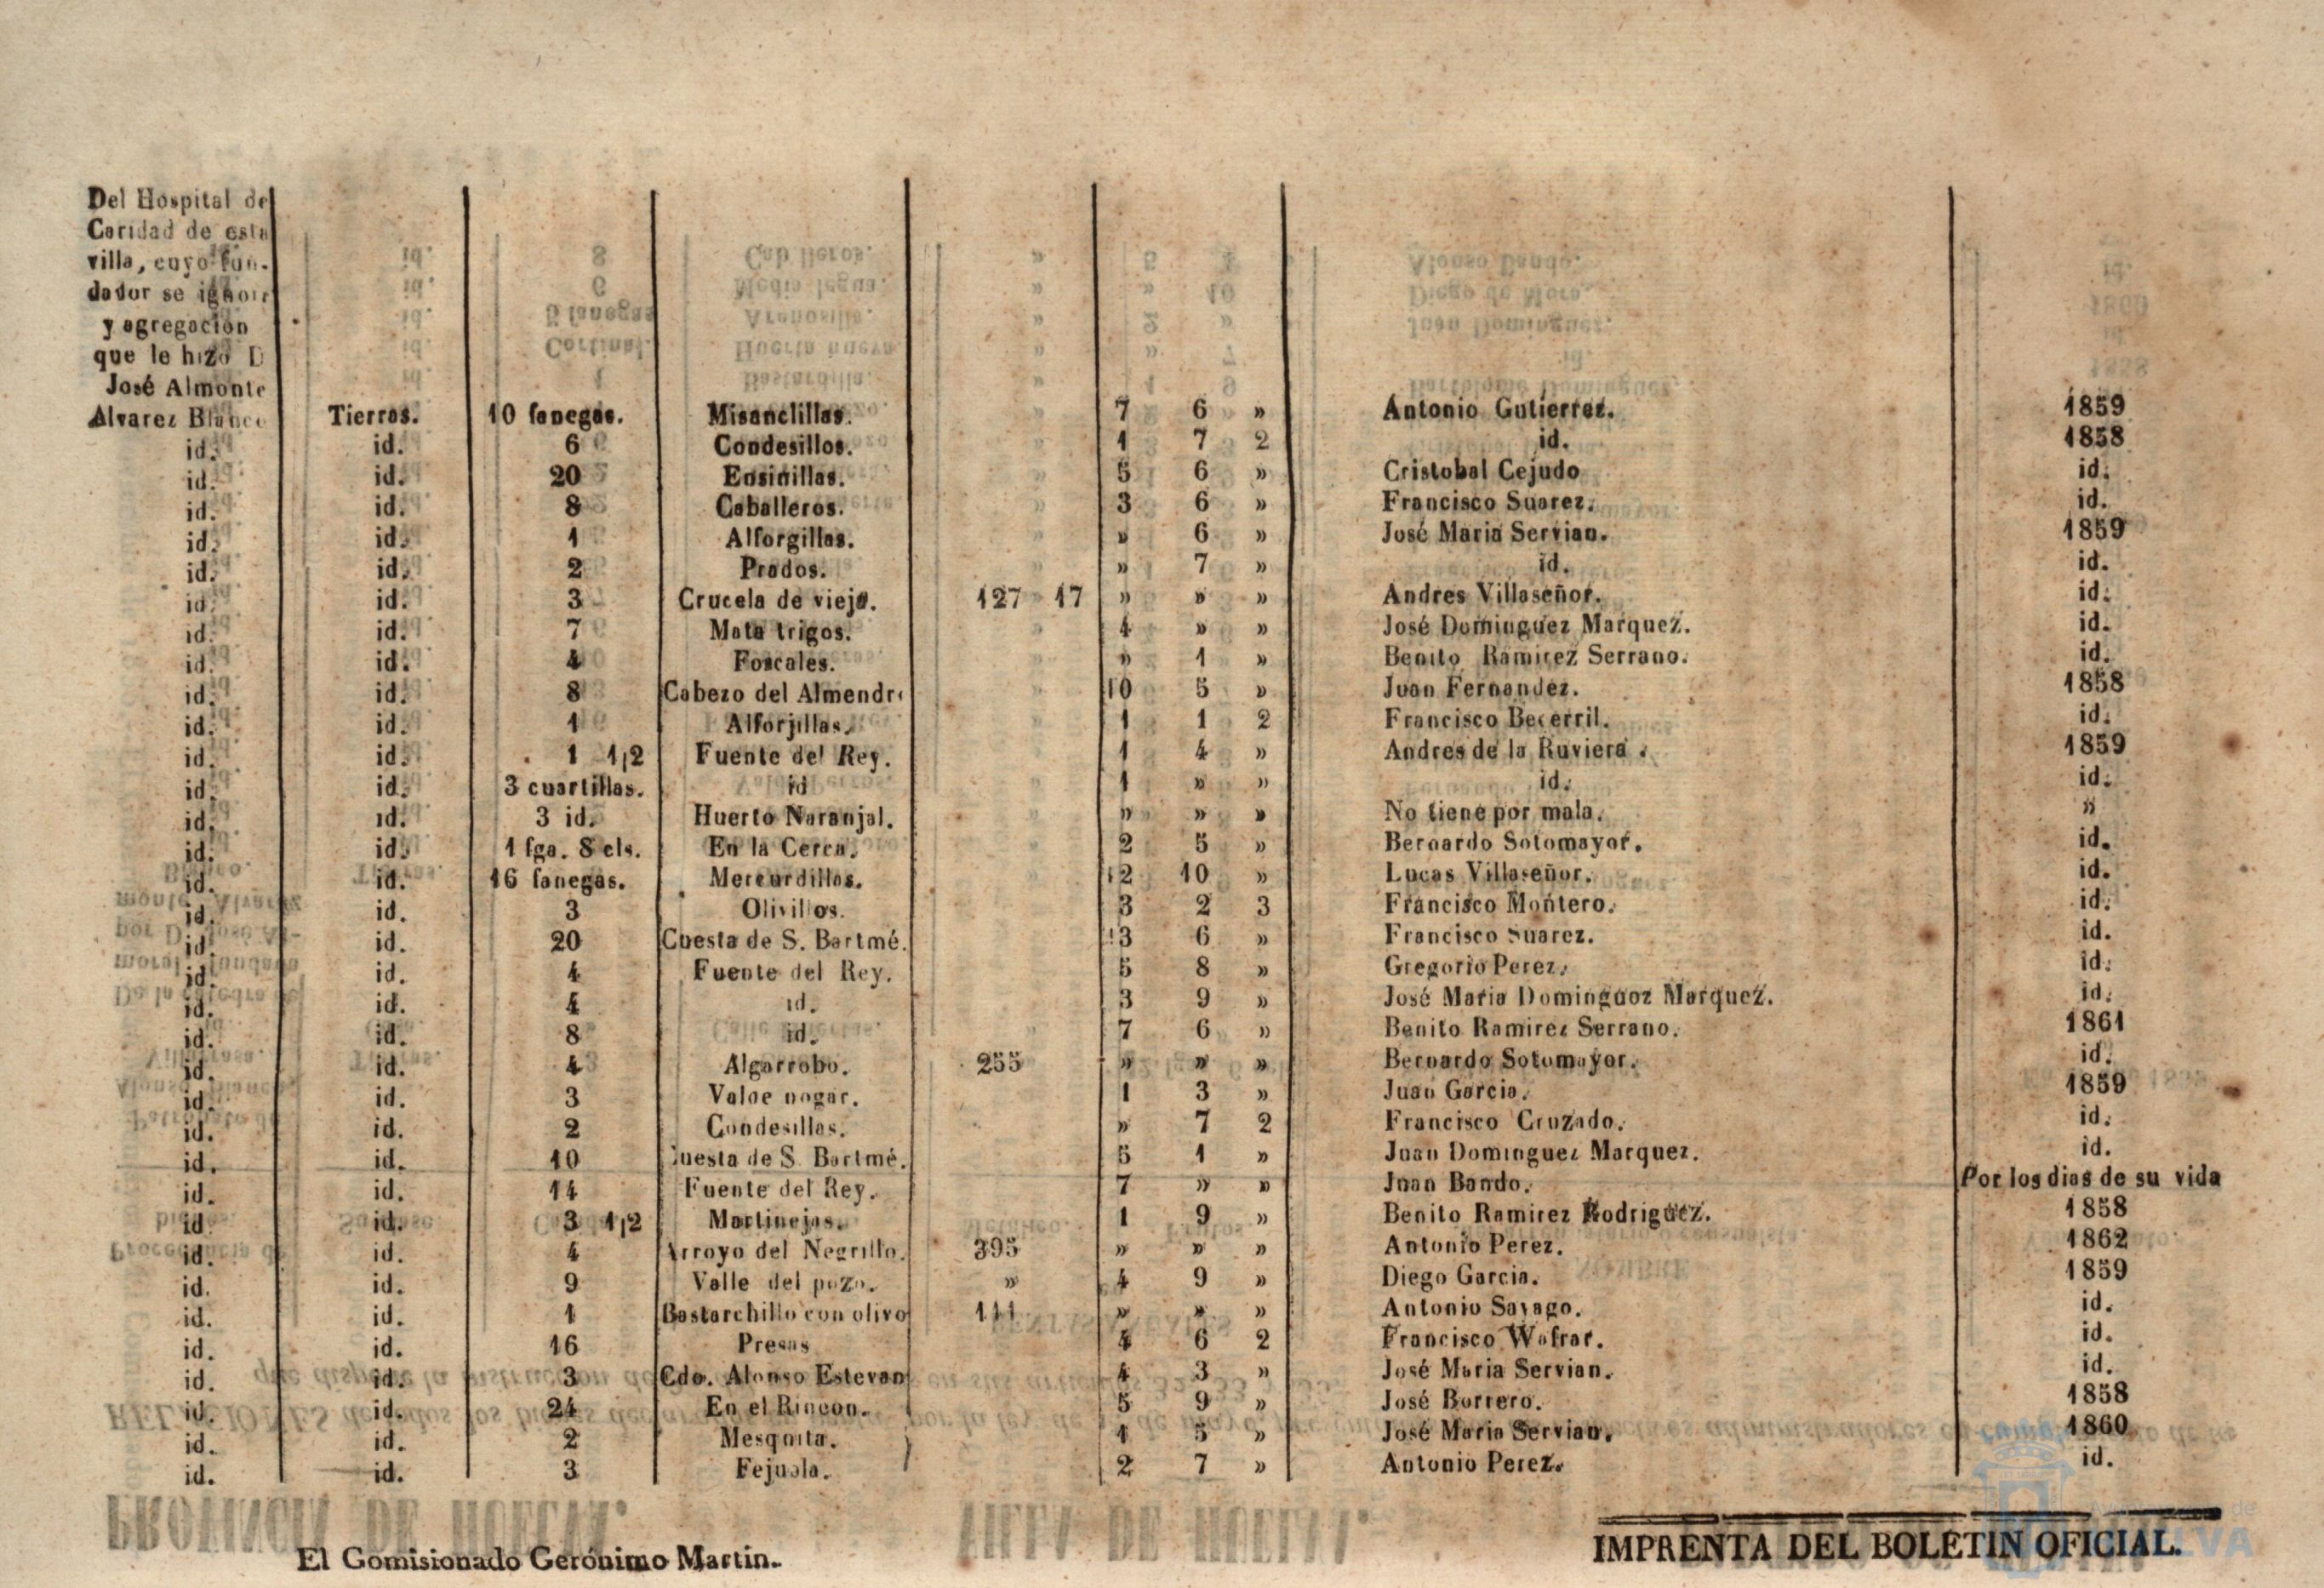 Del Hospital de
Caridad de esta
villa, cuyo fun-
dador se ignora
y agregacion
que le hizo D
José Almonte
Alvarez Blanco Tierras. 10 fanegas. Misanclillas. 7 6 » Antonio Gutierrez. 1859
id. id. 6 Condesillos. 1 7 2 id. 1858
id. id. 20 Ensinillas. 5 6 » Cristobal Cejudo id.
id. id. 8 Caballeros. 3 6 » Francisco Suarez. id.
id. id. 1 Alforgillas. » 6 » José Maria Servian. 1859
id. id. 2 Prados. » 7 » id. id.
id. id. 3 Crucela de vieja. 127 17 » » » Andres Villaseñor. id.
id. id. 7 Mata trigos. 4 » » José Dominguez Marquez. id.
id. id. 4 Foscales. » 1 » Benito Ramirez Serrano. id.
id. id. 8 Cabezo del Almendro 10 5 » Juan Fernandez. 1858
id. id. 1 Alforjillas. 1 1 2 Francisco Becerril. id.
id. id. 1 1/2 Fuente del Rey. 1 4 » Andres de la Ruviera. 1859
id. id. 3 cuartillas. id 1 » » id. id.
id. id. 3 id. Huerto Naranjal. » » » No tiene por mala. »
id. id. 1 fga. 8 cls. En la Cerca. 2 5 » Bernardo Sotomayor. id.
id. id. 16 fanegas. Mercurdillas. 12 10 » Lucas Villaseñor. id.
id. id. 3 Olivillos. 3 2 3 Francisco Montero. id.
id. id. 20 Cuesta de S. Bartmé. 13 6 » Francisco Suarez. id.
id. id. 4 Fuente del Rey. 5 8 » Gregorio Perez. id.
id. id. 4 id. 3 9 » José Maria Dominguoz Marquez. id.
id. id. 8 id. 7 6 » Benito Ramirez Serrano. 1861
id. id. 4 Algarrobo. 255 » » » Bernardo Sotomayor. id.
id. id. 3 Valde nogar. 1 3 » Juan Garcia. 1859
id. id. 2 Condesillas. » 7 2 Francisco Cruzado. id.
id. id. 10 Cuesta de S. Bartmé. 5 1 » Juan Dominguez Marquez. id.
id. id. 14 Fuente del Rey. 7 » » Juan Bando. Por los dias de su vida
id. id. 3 1/2 Martinejas. 1 9 » Benito Ramirez Rodriguez. 1858
id. id. 4 Arroyo del Negrillo. 395 » » » Antonio Perez. 1862
id. id. 9 Valle del pozo. » 4 9 » Diego Garcia. 1859
id. id. 1 Bastarchillo con olivo 111 » » » Antonio Sayago. id.
id. id. 16 Presas 4 6 2 Francisco Wafrar. id.
id. id. 3 Cdo. Alonso Estevan 4 3 » José Maria Servian. id.
id. id. 24 En el Rincon. 5 9 » José Borrero. 1858
id. id. 2 Mesquita. 1 5 » José Maria Servian. 1860
id. id. 3 2 7 » Antonio Perez. id.
El Comisionado Gerónimo Martin.
IMPRENTA DEL BOLETIN OFICIAL.